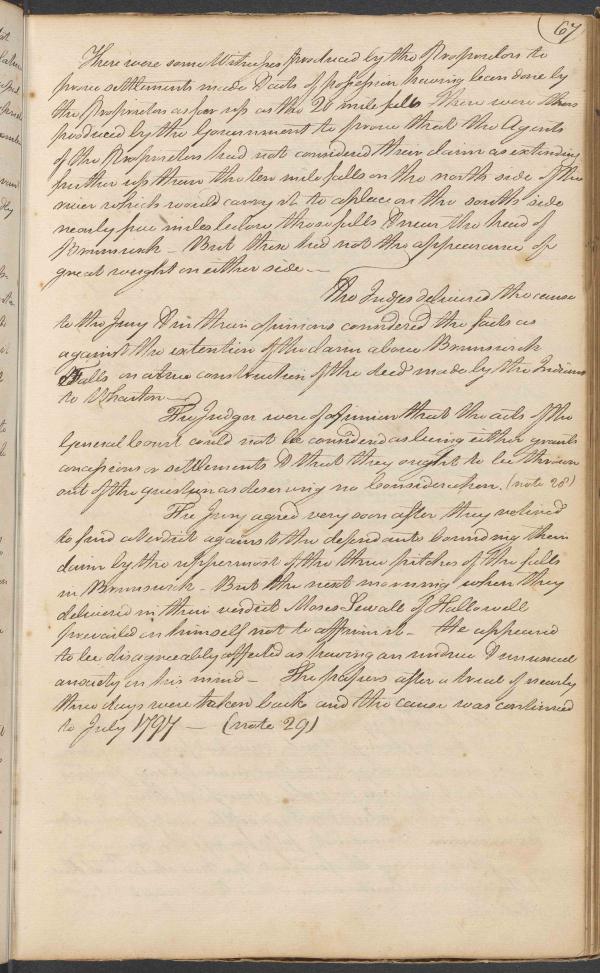 67
There were some Witnesses produced by the Proprietors to
prove settlements made & acts of possession having been done by
the Proprietors as far up as the 20 mile falls There were others
produced by the Government to prove that the Agents
of the Proprietors had not considered their claim as extending
further up than the ten mile falls on the north side of the
river which would carry it to a place on the south side
nearly five miles below those falls & near the head of
Brunswick – But these had not the appearance of
great weight on either side –
The Judges delivered the cause
to the Jury & in their opinions considered the facts as
against the extention of the claim above Brunswick
Falls on a true construction of the deed made by the Indians
to Wharton –
The Judges were of opinion that the acts of the
General Court could not be considered as being either grants
concessions or settlements & that they ought to be thrown
out of the question as deserving no Consideration. (note 28)
The Jury agreed very soon after they retired
to find a Verdict against the defendants bounding their
claim by the uppermost of the three pitches of the falls
in Brunswick – But the next morning when they
delivered in their verdict Moses Sewall of Hallowell
prevailed on himself not to affirm it – He appeared
to be disagreeably affected as having an undue & unusual
anxiety in his mind – The papers after a trial of nearly
three days were taken back and the cause was continued
to July 1797 – (note 29)